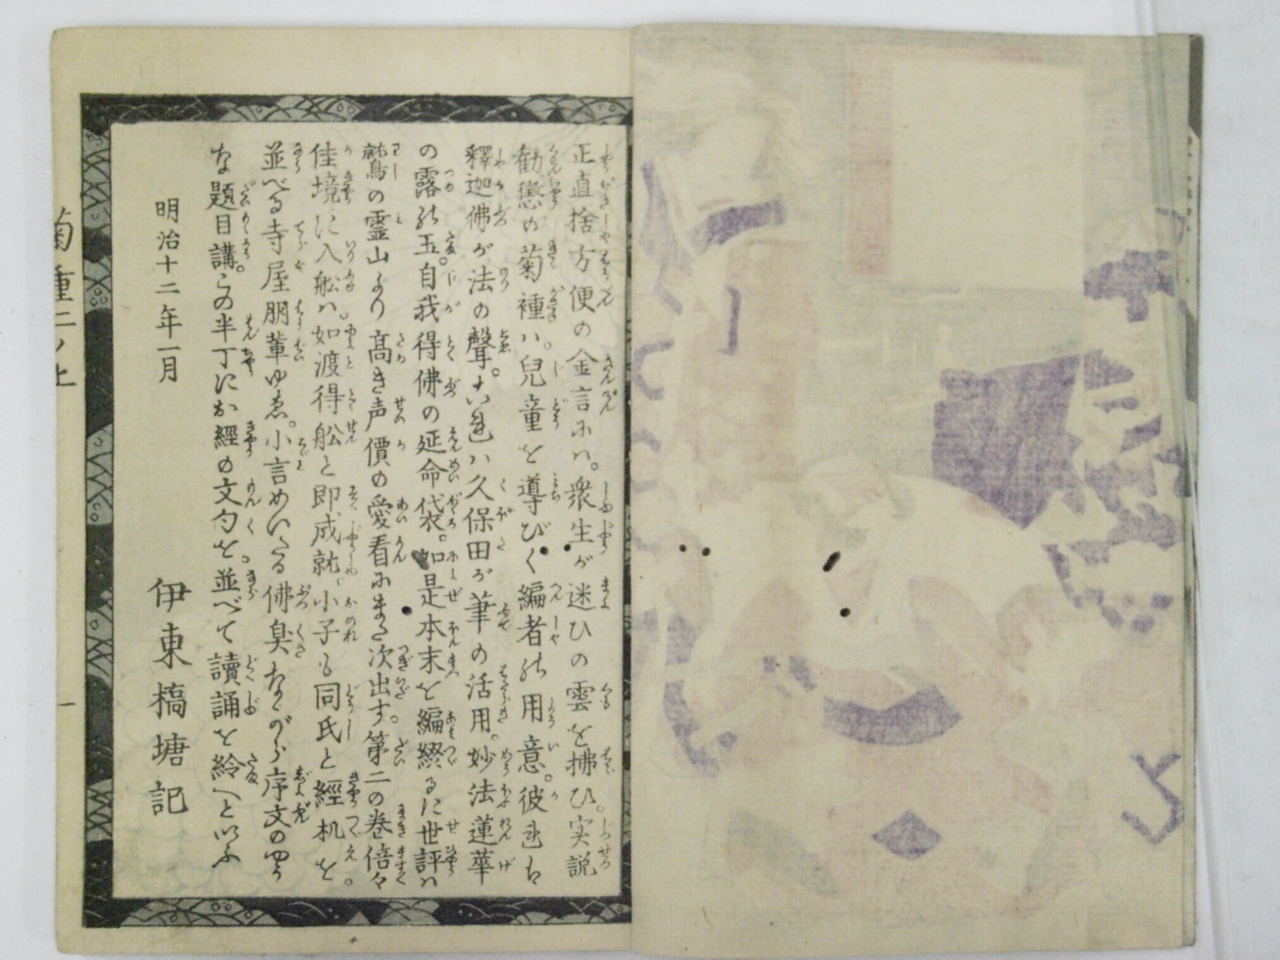 正直捨方便の金言にハ。衆生が迷ひの雲を拂ひ。実説
勧懲の菊種ハ。児童を導びく編者の用意。彼
釋迦佛が法の聲。それハ久保田が筆の活用。妙法蓮華
の露の玉。自我得佛の延命袋。如是本末を編綴るに世評ハ
鷲の霊山より高き声價の愛看にまた次出す。第二の巻倍々
佳境に入船ハ。如渡得舩と即成就小子も同氏と經机を
並べる寺屋朋輩ゆゑ。小言めいたる佛臭ながら序文のやう
な題目講。この半丁にお經の文句を。並べて讀誦を給へといふ
明治十二年一月
伊東橋塘記
菊種二ノ上
一